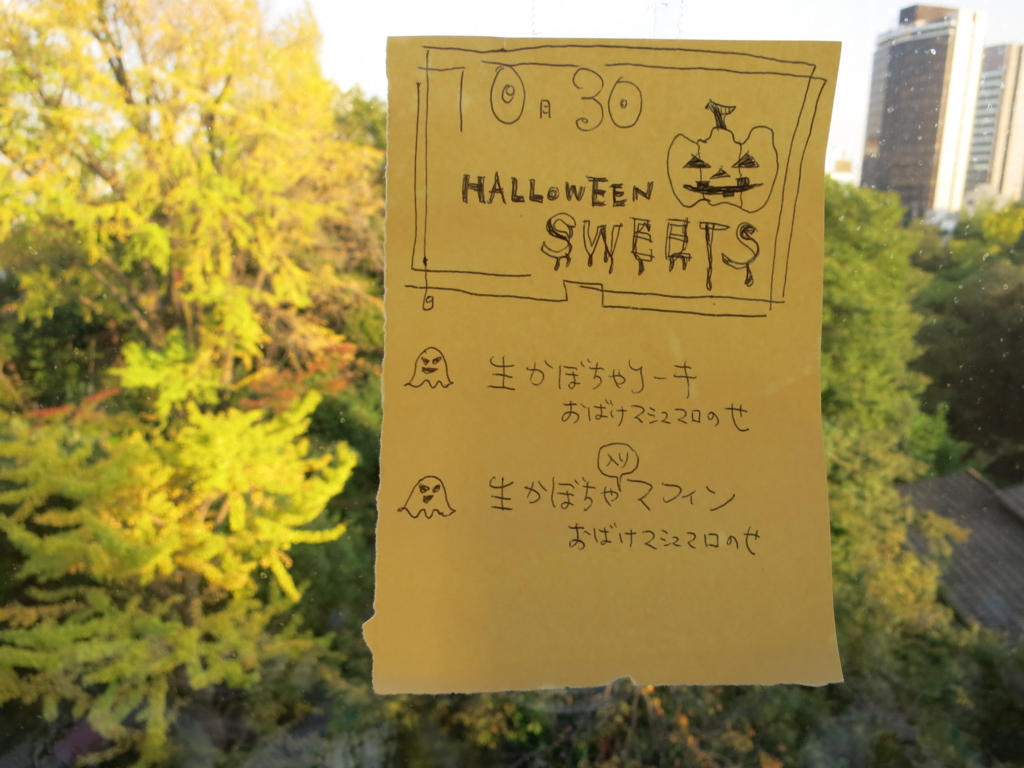 10月30
HALLOWEEN
SWEETS
生かぼちゃケーキ
おばけマシュマロのせ
入り
生かぼちゃマフィン
おばけマシュマロのせ